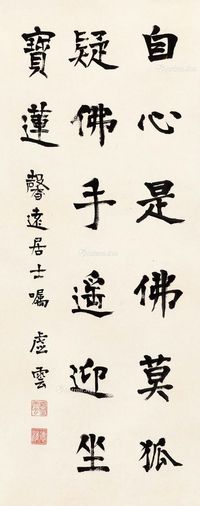 自心是佛莫狐
疑佛手遥迎坐
寶蓮
馨遠居士嘱 虚雲